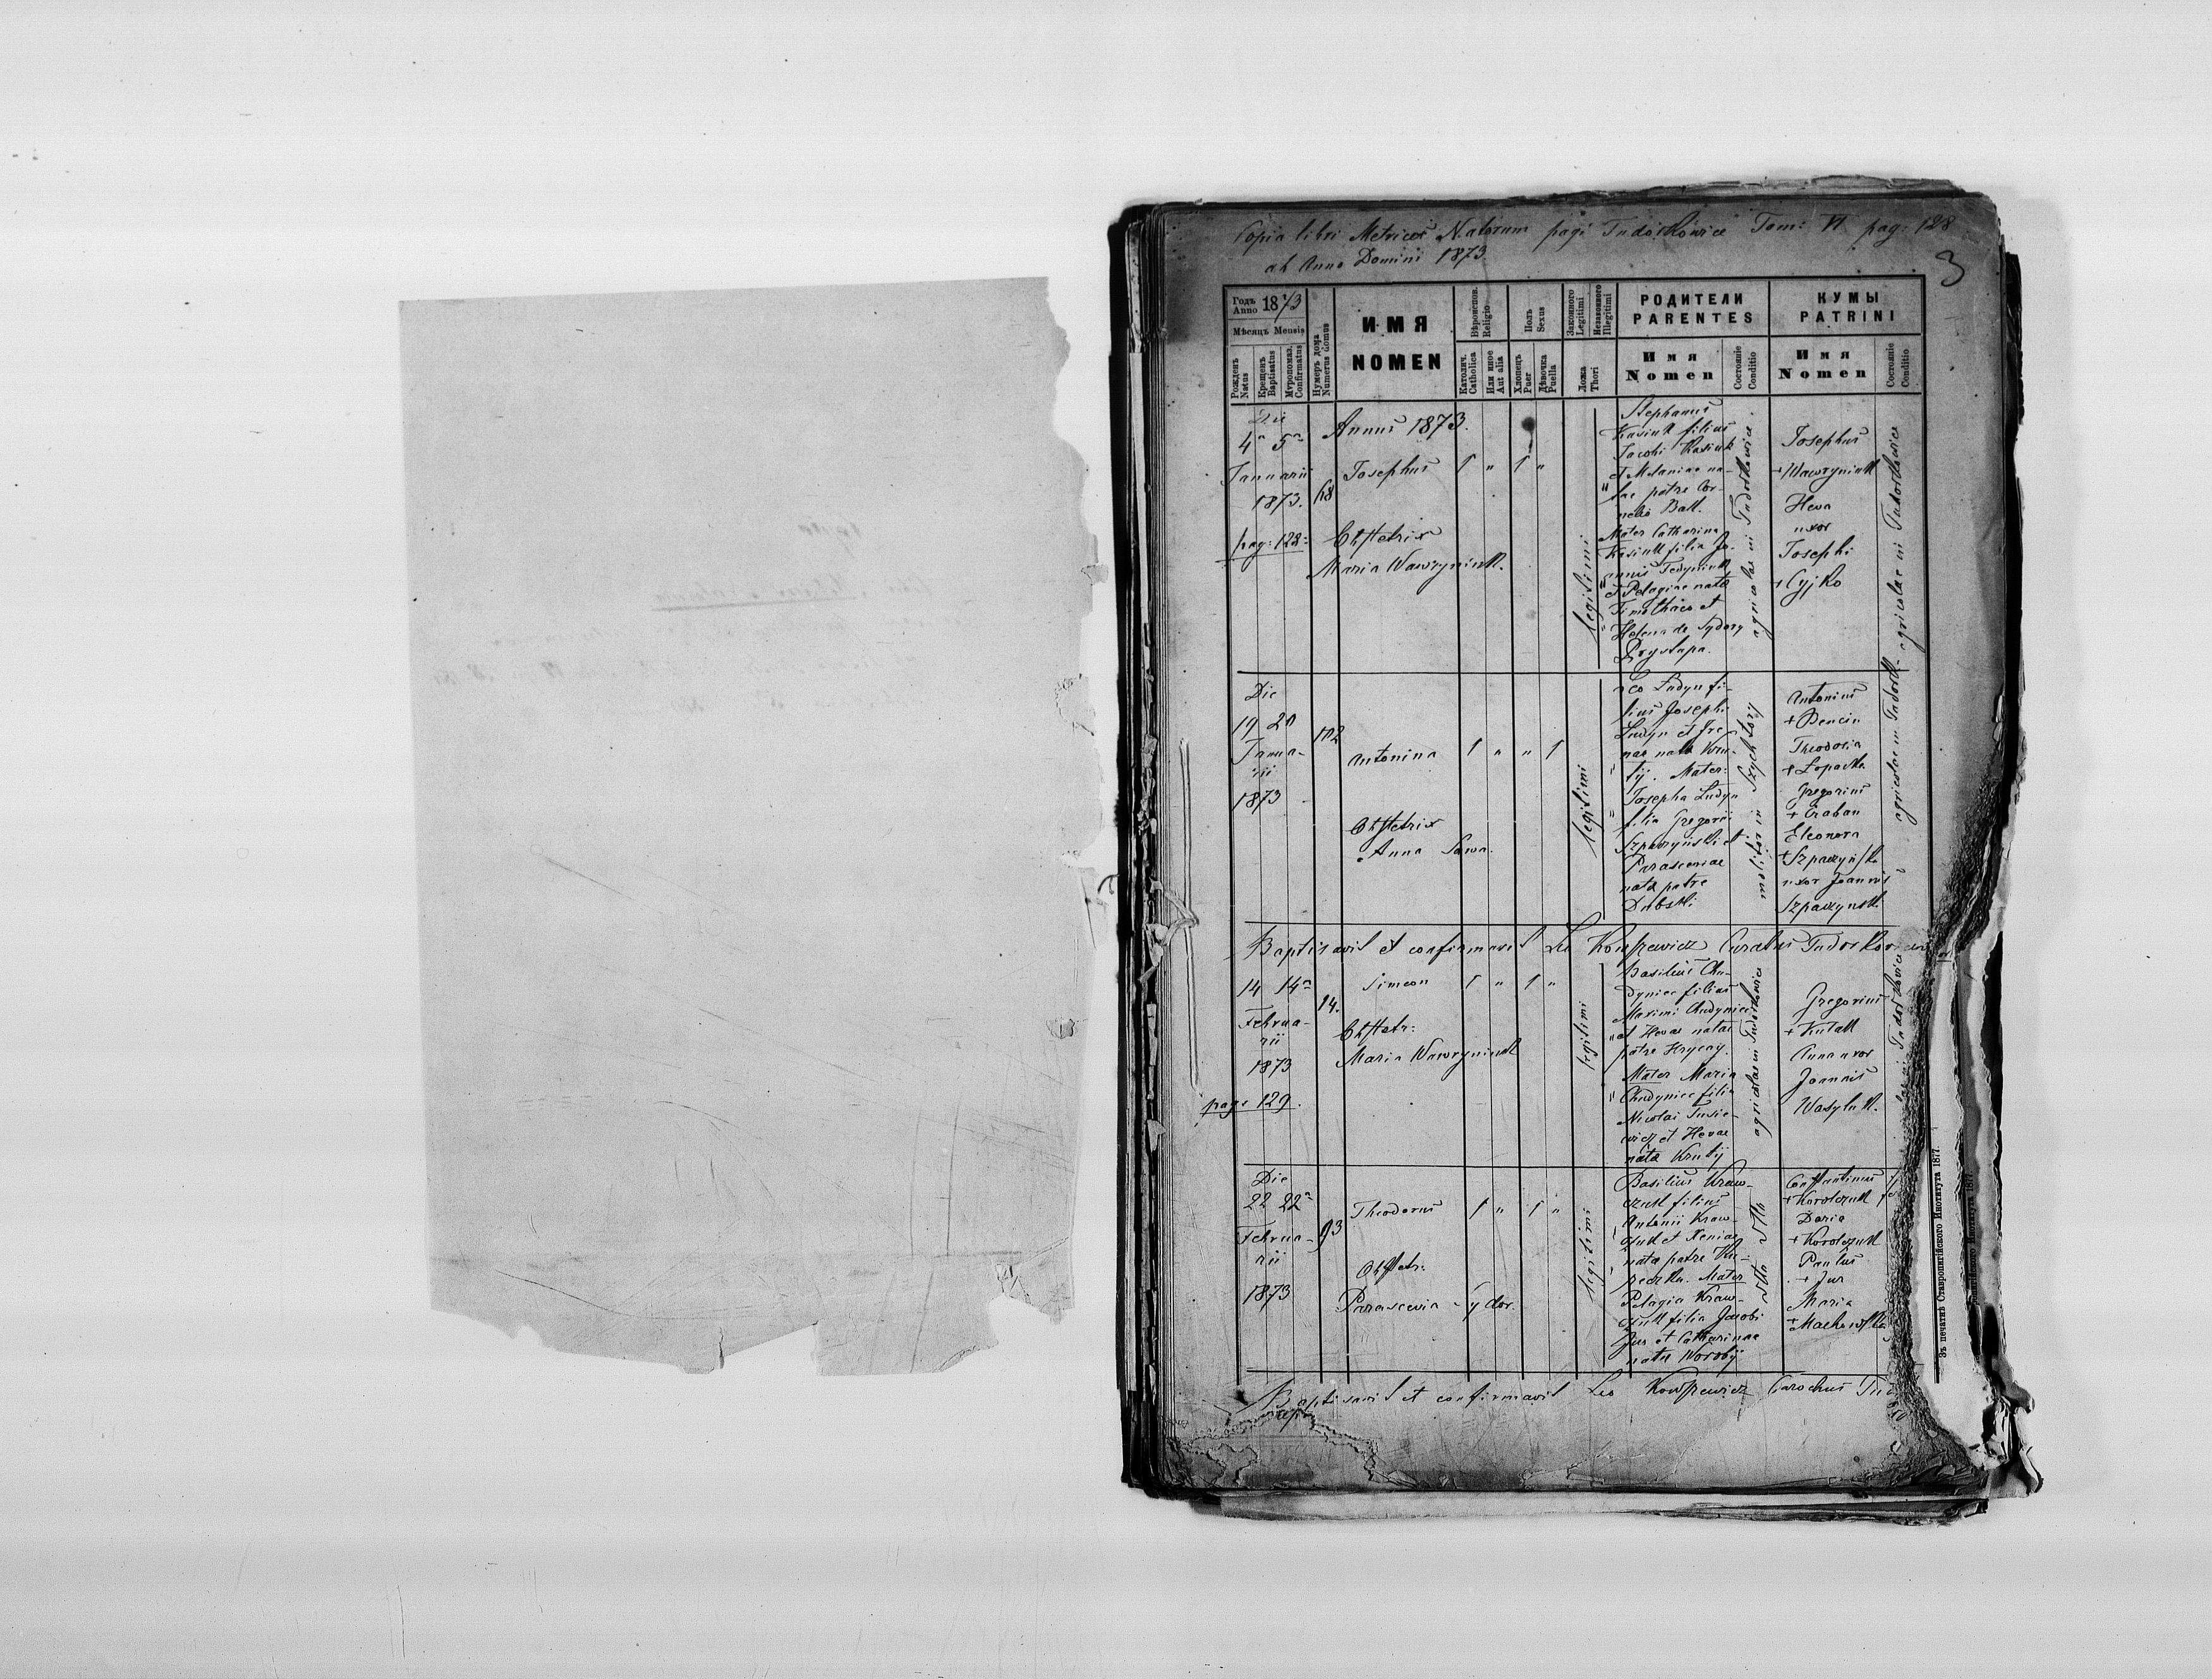 Copia libri Metrices Natorum pagi Tudorkowice Tom: VI pag: 128
ab Anno Domini 1873
3
Годъ Anno 1873
Мѣсяцъ Mensis
Рожденъ Natus
Крещенъ Baptisatus
Мѵропомаз. Confirmatus
Нумеръ дома Numerus domus
ИМЯ
NOMEN
Вѣроиспов. Religio
Католич. Catholica
Или иное Aut alia
Полъ Sexus
Хлопецъ Puer
Дѣвочка Puella
Законного Legitimi
Незаконного Illegitimi
Ложа Thori
РОДИТЕЛИ
PARENTES
Имя
Nomen
Состояніе Conditio
КУМЫ
PATRINI
Имя
Nomen
Состояніе Conditio
Die
4a 5a
Januarii
1873.
pag: 128
68
Annus 1873.
Josephus
1 " 1 "
Obstetrix
Maria Wawryniuk.
legitimi
Stephanus
Kasiuk filius
Jacobi Kasiuk
et Melaniae na-
tae patre Cor-
nelio Ball.
Mater Catharina
Kasiuk filia Jo-
annis Fedyniuk
et Pelagiae nata
Timothaeo et
Helena de Sydory
Prystapa.
agricolae in Tudorkowice.
Josephus
+ Wawryniuk
Heva
uxor
Josephi
+ Cyjko
agricolae in Tudorkowice
Die
19 20
Janua-
rii
1873
102
Antonina
1 " " 1
Obstetrix
Anna Sawa.
legitimi
Leo Ludyn fi-
lius Josephi
Ludyn et Ire-
nae nata Kru-
tij. Mater:
Josepha Ludyn
filia Gregorii
Szpaczynski et
Parasceviae
nata patre
Dubski.
molitor in Szychtory
Antonius
+ Dencin
Theodosia
+ Lopacka
Gregorius
+ Graban
Eleonora
+ Szpaczyńska
uxor Joannis
Szpaczynsk.
agricolae in Tudork.
Baptisavit et confirmavit Leo Kowszewicz Curatus Tudorkovicen
14 14a
Februa-
rii
1873
page 129.
14.
Simeon
1 " 1 "
Obstetr:
Maria Wawryniuk
legitimi
Basilius Chu-
dyniec filius
Maximi Chudyniec
et Hevae natae
patre Hrycaj.
Mater Maria
Chudyniec filia
Nicolai Tusie-
wicz et Hevae
nata Krutij
agricolae in Tudorkowice
Gregorius
+ Kutak
Anna uxor
Joannis
Wasyluk.
Die
22 22a
Februa-
rii
1873
93
Theodorus
1 " 1 "
Obstetr:
Parascevia Sydor.
legitimi
Basilius Kraw-
czuk filius
Antonii Kraw-
czuk et Xeniae
nata patre Ku-
peczka. Mater
Pelagia Kraw-
czuk filia Jacobi
Jus et Catharinae
nata Worobij
Constantinus
+ Korolczuk
Daria
+ Korolczuk
Paulus
+ Jus
Maria
+ Machowska
Baptisavit et confirmavit Leo Kowszewicz Parochus Tud
Зъ печатнѣ Ставропигійского Института 1877.